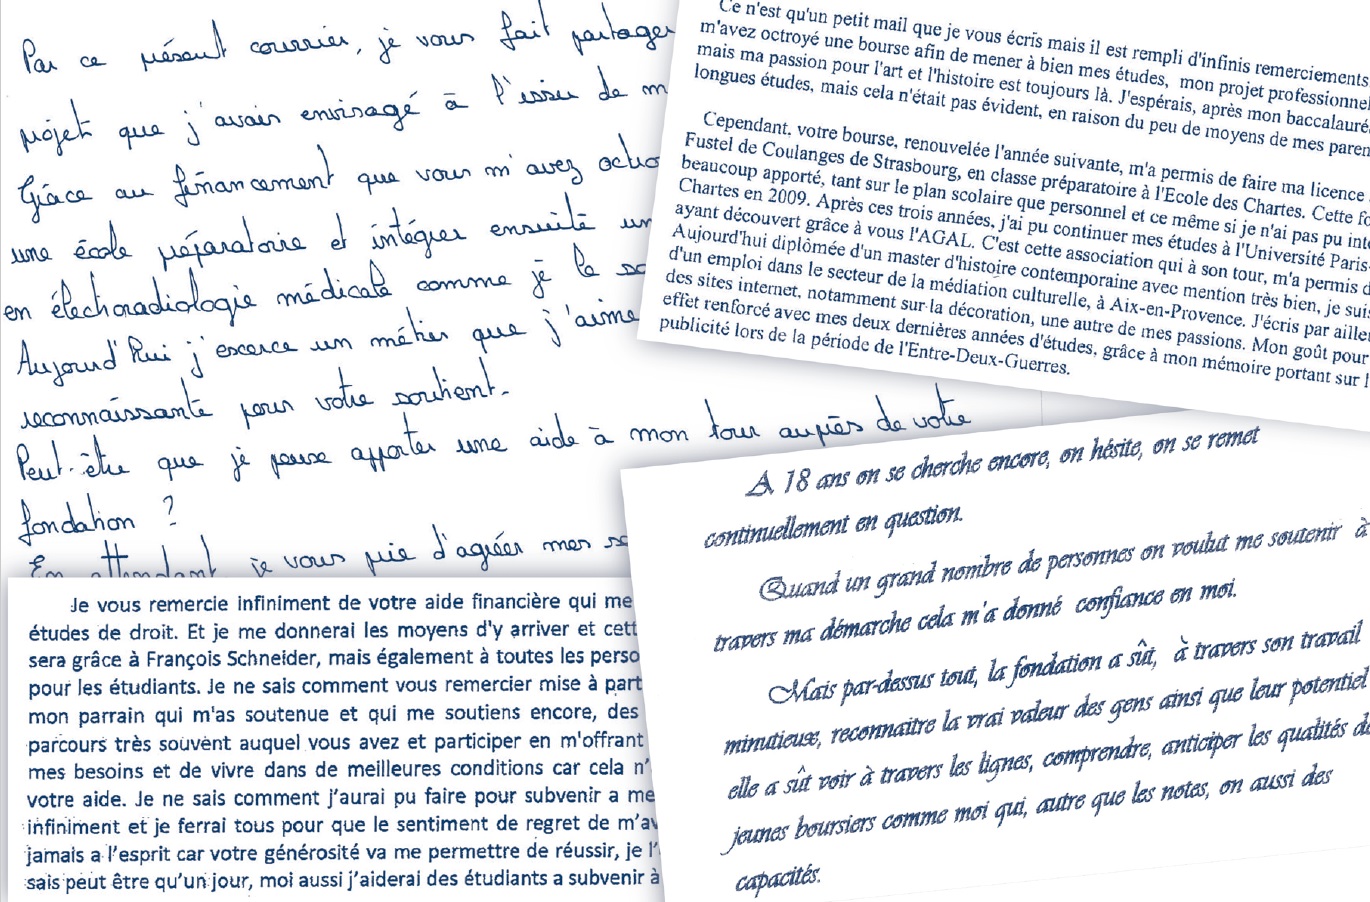 Par ce présent courrier, je vous fait partager
projet que j'avais envisagé à l'issu de m
Grâce au financement que vous m'avez octro
une école préparatoire et intégrer ensuite un
en électroradiologie médicale comme je le so
Aujourd'hui j'exerce un métier que j'aime
reconnaissante pour votre soutient.
Peut-être que je peux apporter une aide à mon tour auprès de votre
fondation ?
En attendant, je vous prie d'agréer mes sa
Ce n'est qu'un petit mail que je vous écris mais il est rempli d'infinis remerciements
m'avez octroyé une bourse afin de mener à bien mes études, mon projet professionnel
mais ma passion pour l'art et l'histoire est toujours là. J'espérais, après mon baccalauré
longues études, mais cela n'était pas évident, en raison du peu de moyens de mes paren
Cependant, votre bourse, renouvelée l'année suivante, m'a permis de faire ma licence
Fustel de Coulanges de Strasbourg, en classe préparatoire à l'Ecole des Chartes. Cette fo
beaucoup apporté, tant sur le plan scolaire que personnel et ce même si je n'ai pas pu inté
Chartes en 2009. Après ces trois années, j'ai pu continuer mes études à l'Université Paris-
ayant découvert grâce à vous l'AGAL. C'est cette association qui à son tour, m'a permis d
Aujourd'hui diplômée d'un master d'histoire contemporaine avec mention très bien, je suis
d'un emploi dans le secteur de la médiation culturelle, à Aix-en-Provence. J'écris par aille
des sites internet, notamment sur la décoration, une autre de mes passions. Mon goût pour
effet renforcé avec mes deux dernières années d'études, grâce à mon mémoire portant sur l
publicité lors de la période de l'Entre-Deux-Guerres.
Je vous remercie infiniment de votre aide financière qui me
études de droit. Et je me donnerai les moyens d'y arriver et cett
sera grâce à François Schneider, mais également à toutes les perso
pour les étudiants. Je ne sais comment vous remercier mise à part
mon parrain qui m'as soutenue et qui me soutiens encore, des
parcours très souvent auquel vous avez et participer en m'offrant
mes besoins et de vivre dans de meilleures conditions car cela n'
votre aide. Je ne sais comment j'aurai pu faire pour subvenir a me
infiniment et je ferrai tous pour que le sentiment de regret de m'av
jamais a l'esprit car votre générosité va me permettre de réussir, je l'
sais peut être qu'un jour, moi aussi j'aiderai des étudiants a subvenir à
A 18 ans on se cherche encore, on hésite, on se remet
continuellement en question.
Quand un grand nombre de personnes on voulut me soutenir à
travers ma démarche cela m'a donné confiance en moi.
Mais par-dessus tout, la fondation a sût, à travers son travail
minutieux, reconnaitre la vrai valeur des gens ainsi que leur potentiel
elle a sût voir à travers les lignes, comprendre, anticiper les qualités de
jeunes boursiers comme moi qui, autre que les notes, on aussi des
capacités.